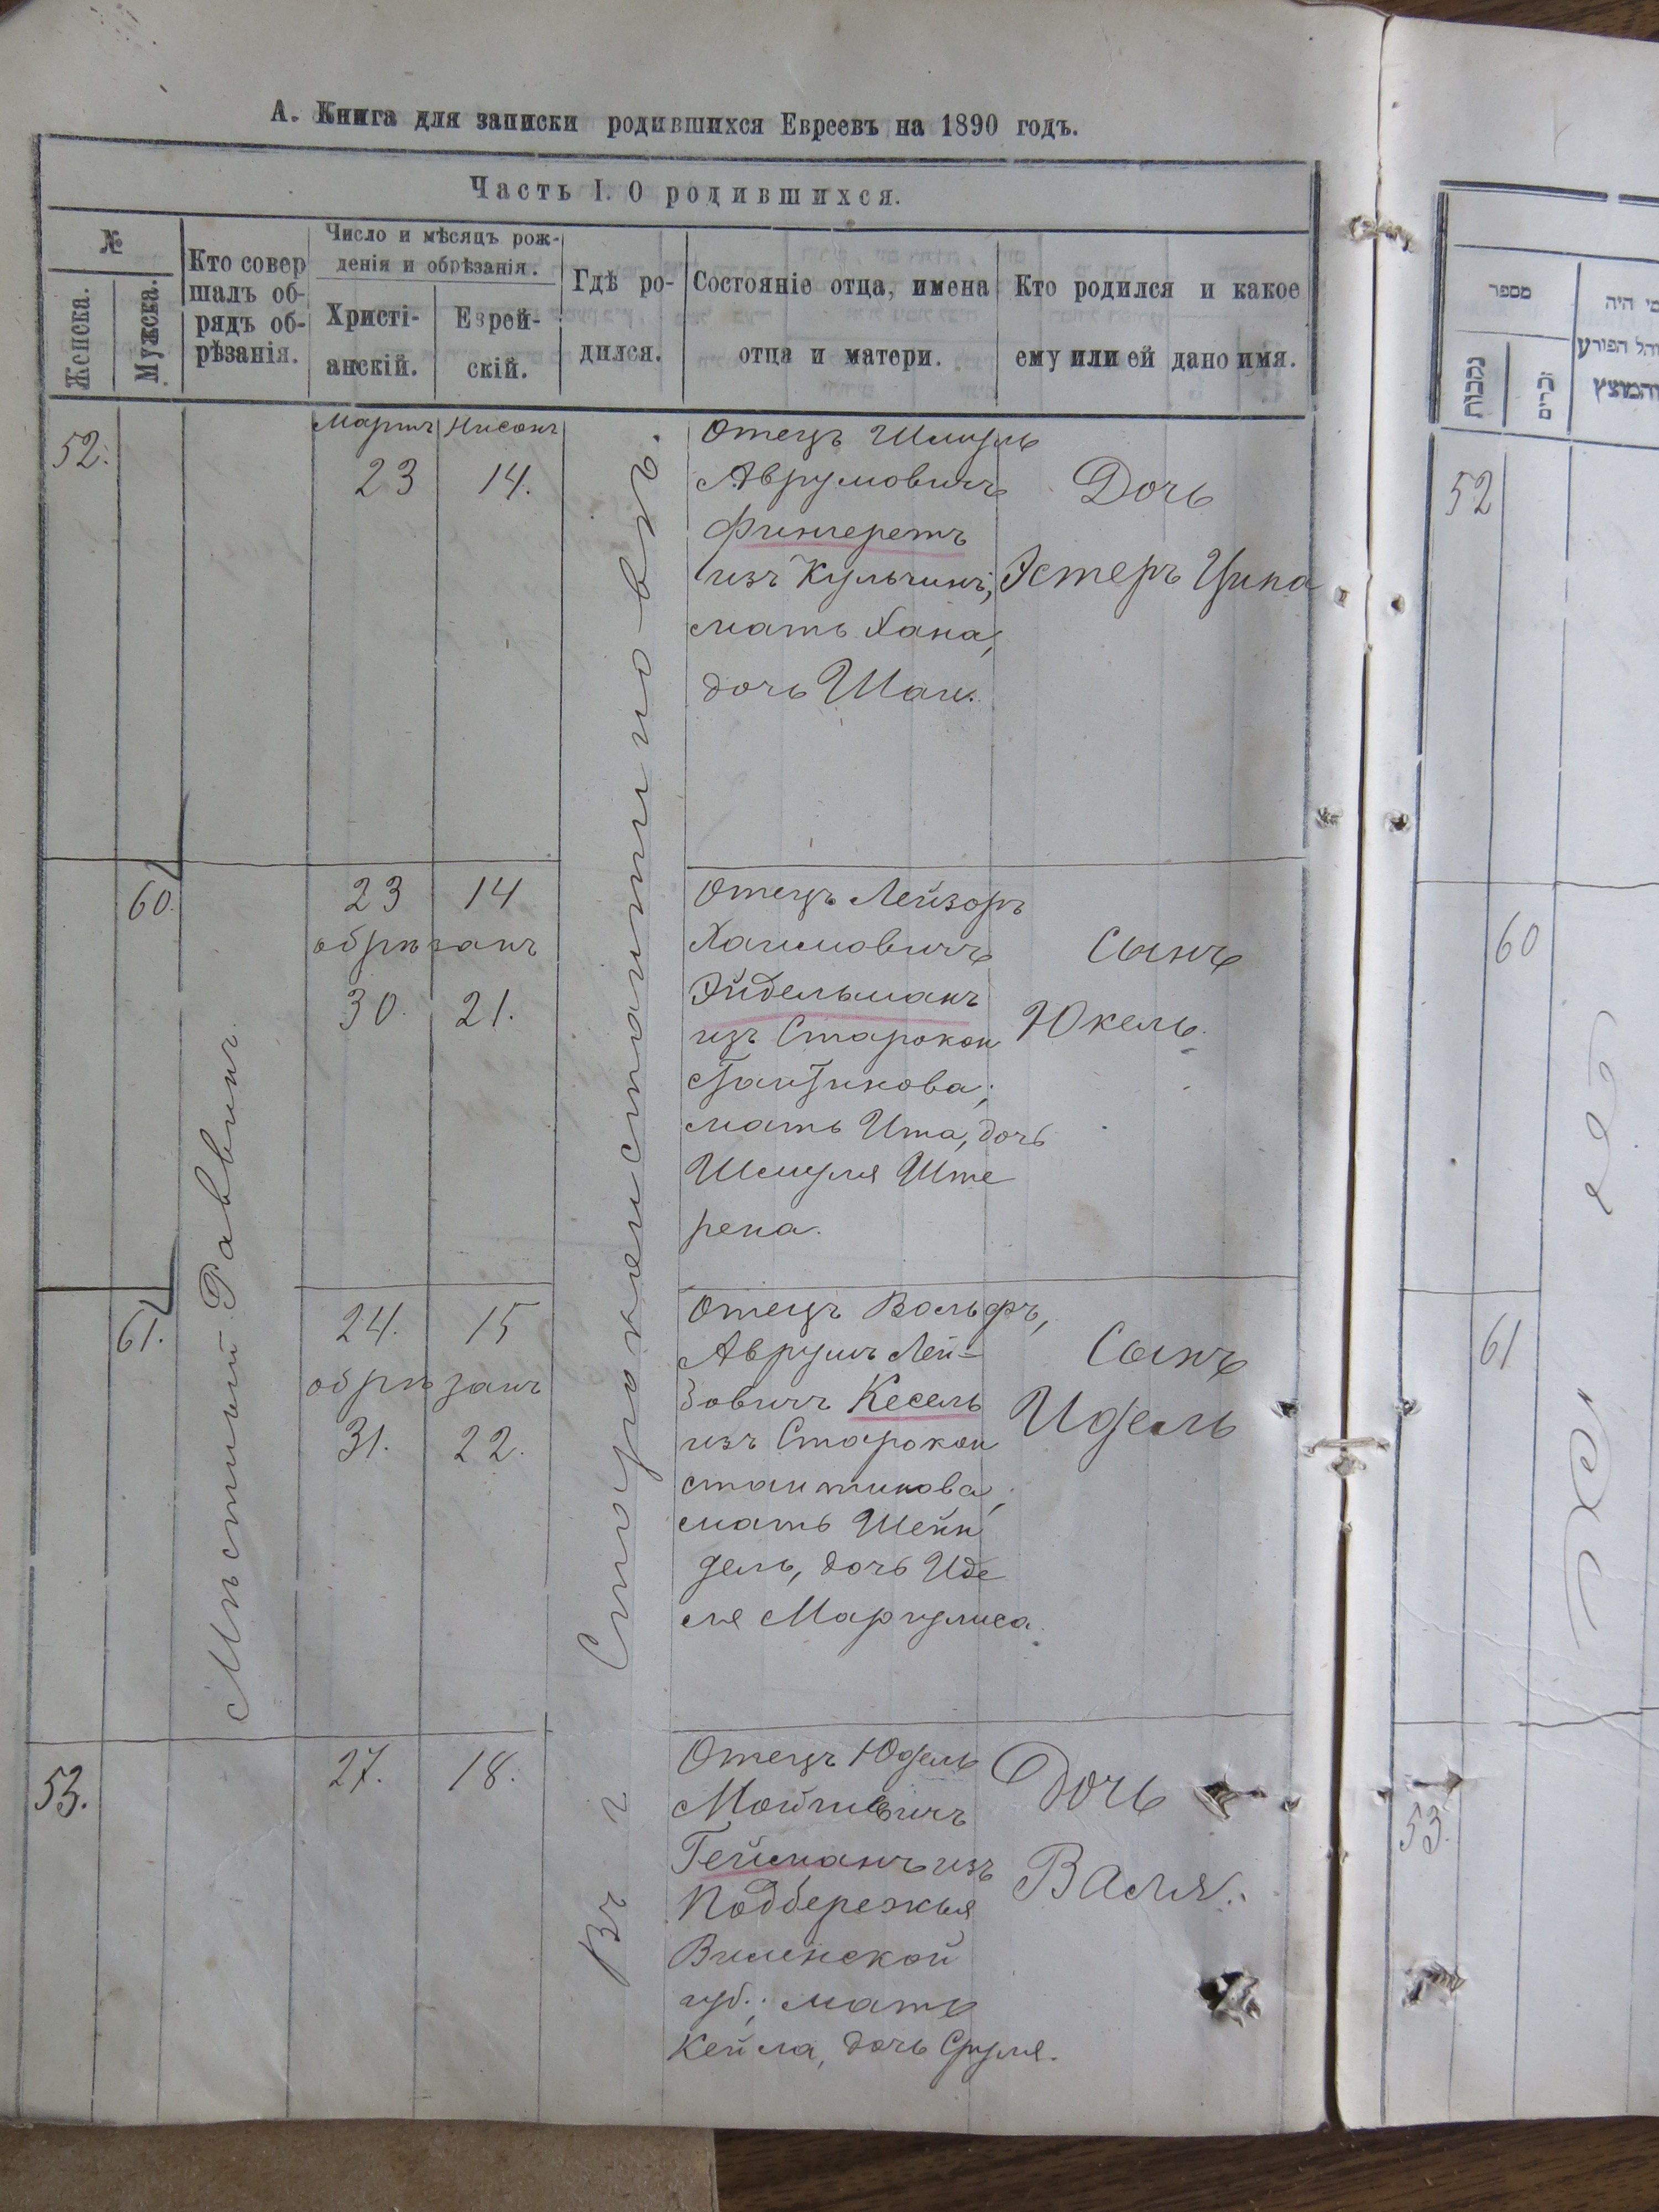 А. Книга для записки родившихся Евреевъ на 1890 годъ.
Часть I. О родившихся.
№
Женска.
Мужска.
Кто совер
шалъ об-
рядъ об-
рѣзанія.
Число и мѣсяцъ рож-
денія и обрѣзанія.
Христі-
анскій.
Еврей-
скій.
Гдѣ ро-
дился.
Состояніе отца, имена
отца и матери.
Кто родился и какое
ему или ей дано имя.
Мѣстный Раввинъ.
Въ г Староконстантиновѣ.
52.
Мартъ Нисонъ
23 14.
Отецъ Шмуль
Аврумовичъ
Фингеретъ
изъ Кульчинъ,
мать Хана,
дочь Шаи.
Дочь
Эстеръ Ципа
60.
23 14
обрѣзанъ
30. 21.
Отецъ Лейзоръ
Хаимовичъ
Эйдельманъ
изъ Старокон
стантинова;
мать Ита, дочь
Шмуля Ште
рена.
Сынъ
Юкель.
61.
24. 15
обрѣзанъ
31. 22.
Отецъ Вольфъ,
Аврумъ Лей-
зовичъ Кесель
изъ Старокон
стантинова;
мать Шейн
дель, дочь Иде
ля Маргулиса.
Сынъ
Идель
53.
27. 18.
Отецъ Юдель
Мойшевичъ
Гейманъ изъ
Подбережья
Виленской
губ.; мать
Кейла, дочь Сруля.
Дочь
Валя.
מספר
נקבות
זכרים
מי היה
המוהל הפורע
והמוצץ
52
60
61
53.